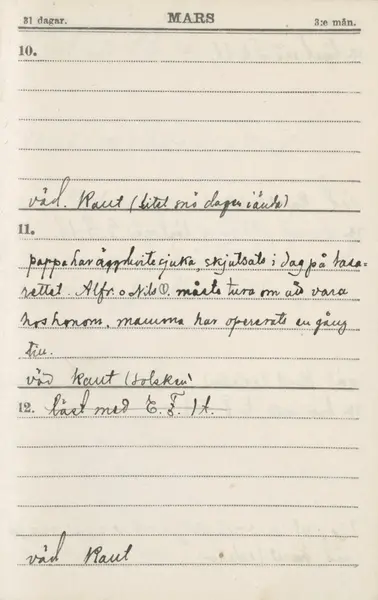 31 dagar. MARS 3:e mån.
10.
väd. Kallt (litet snö dagen i ända)
11.
pappa har äggvhvitesjuka, skjutsats i dag på lasa-
rettet. Alfr. o Nils måste tura om att vara
hos honom, mamma har opererats en gång
till.
väd Kallt (solsken)
12. Läst med E. F. H.
väd Kallt